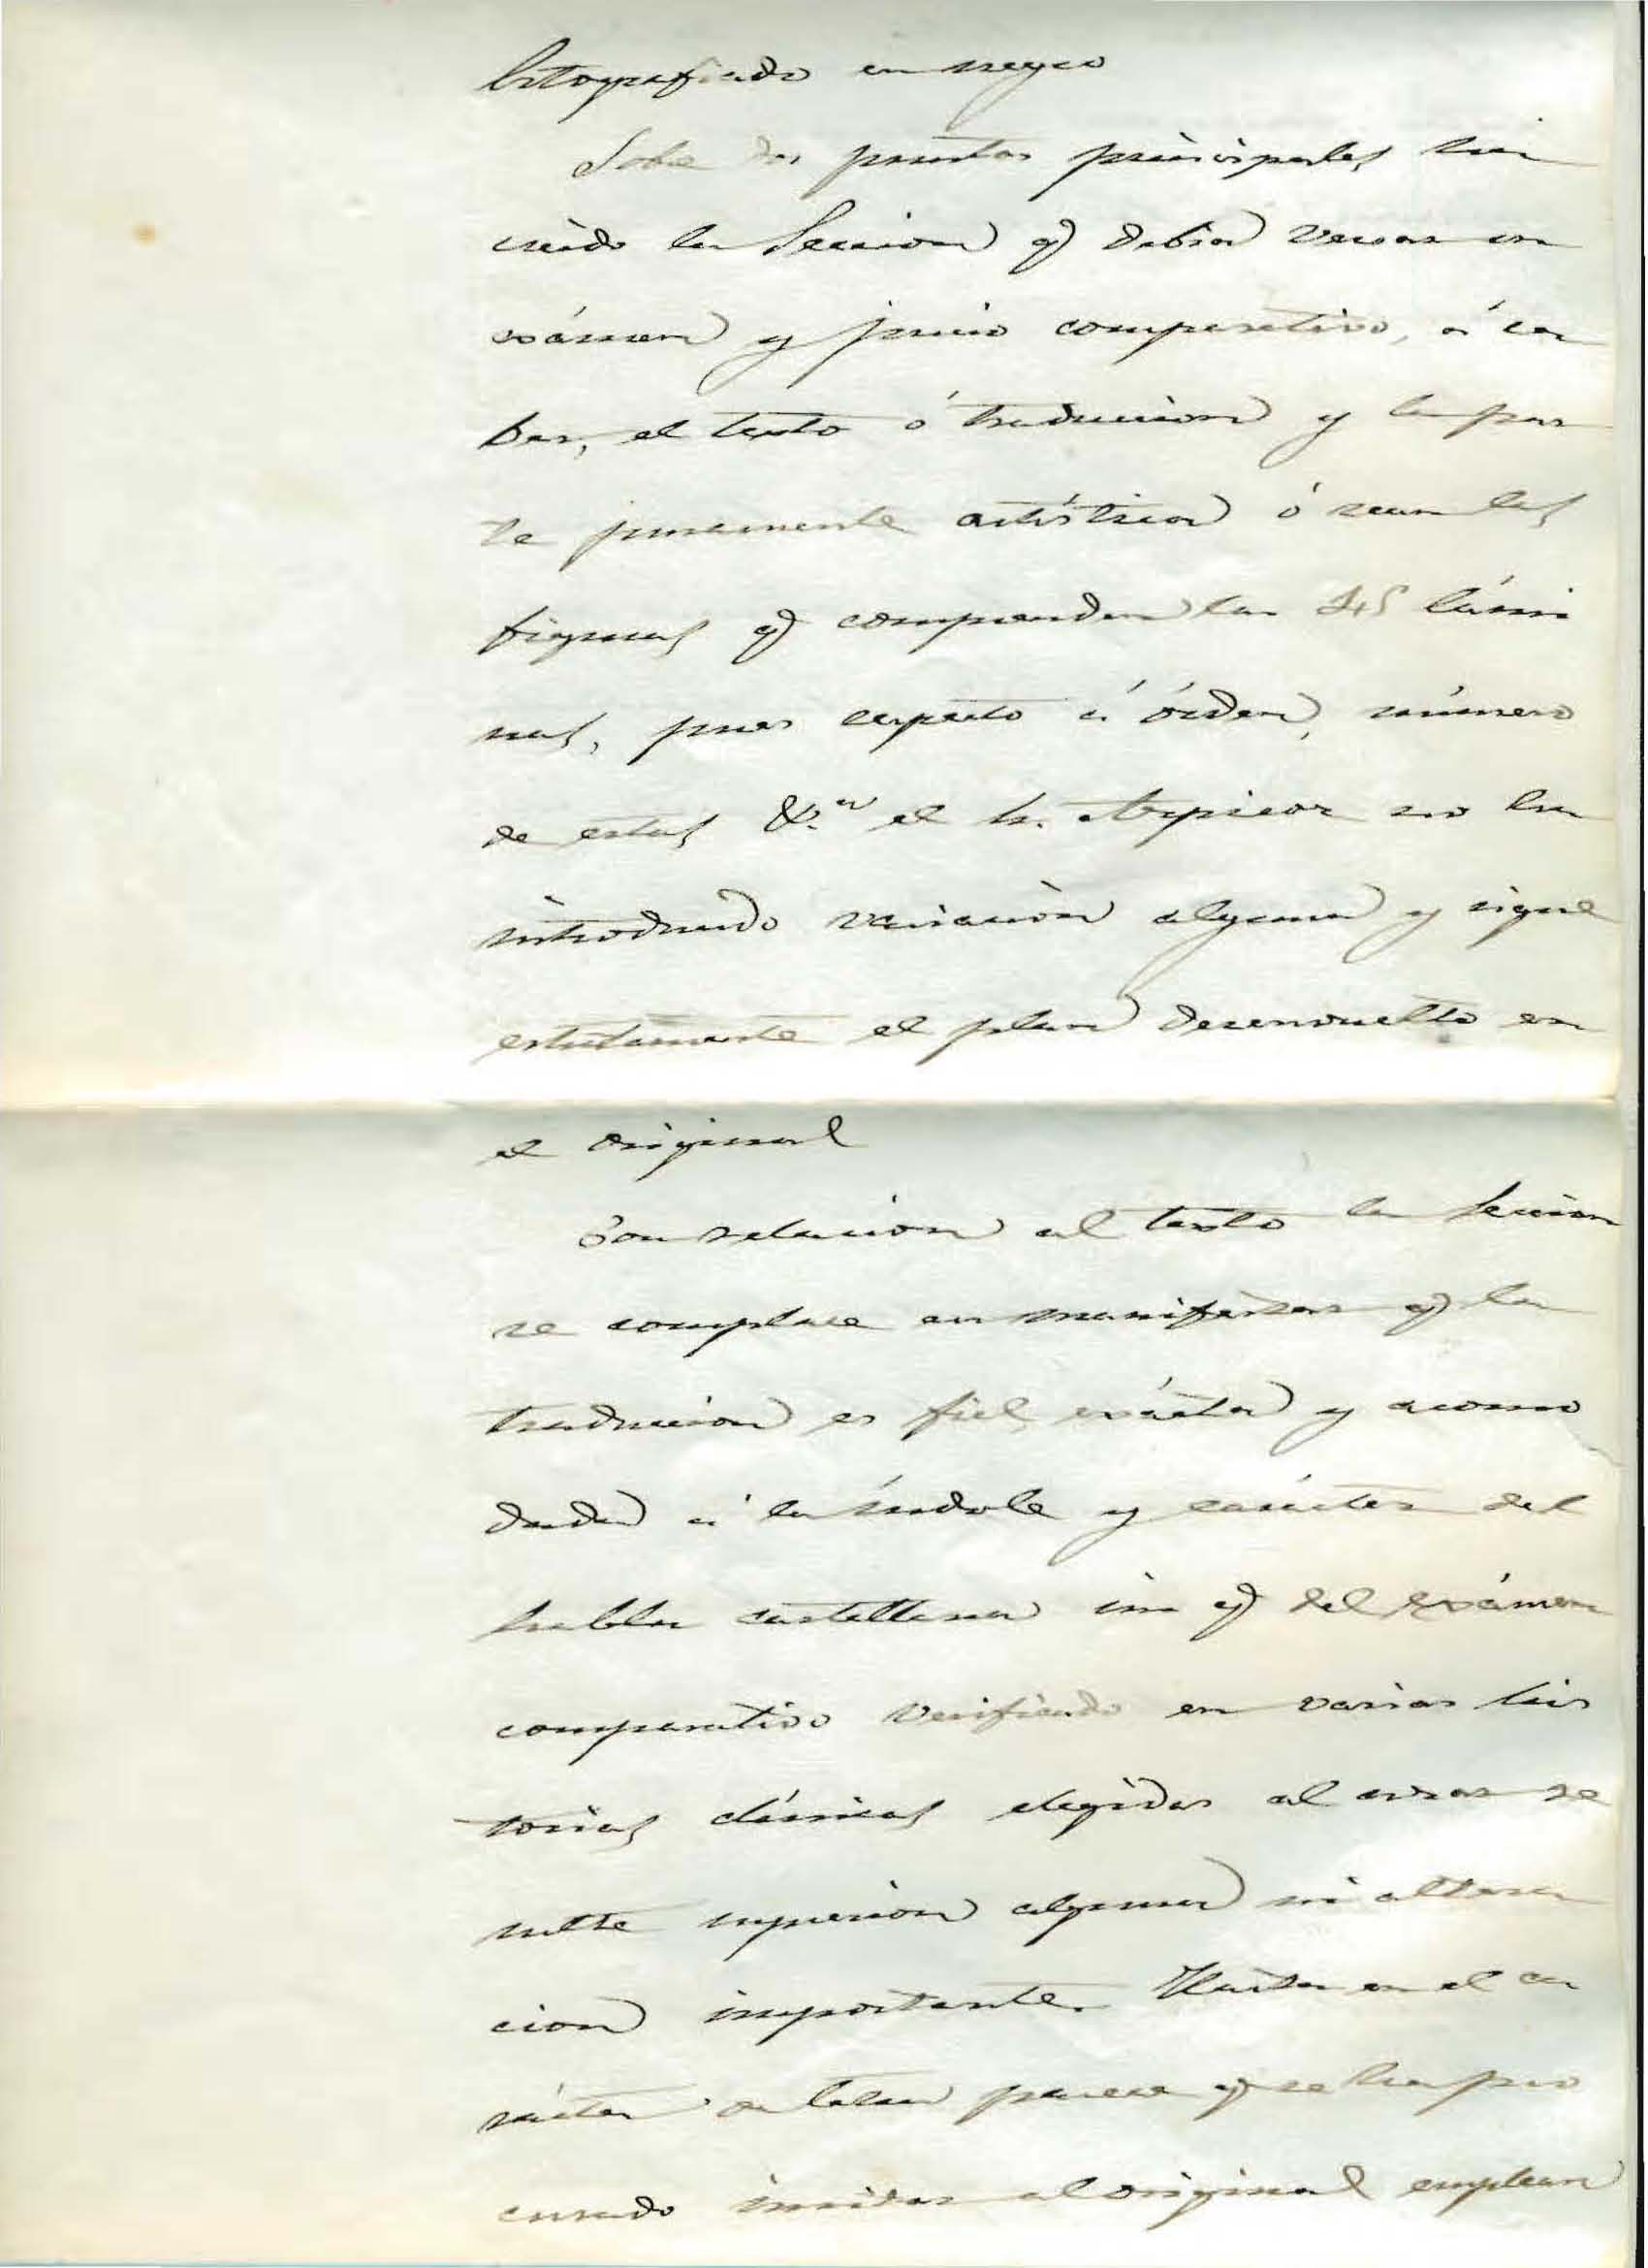 litografiado en negro
Sobre dos puntos principales ha
creido la Seccion q̃ debia versar su
exámen y juicio comparativo, á sa
ber, el testo ó traduccion y la par
te puramente artística ó sean las
figuras q̃ comprenden las 45 lámi
nas, pues respecto á órden, número
de estas &.ª el Sr. no ha
introducido variacion alguna y sigue
estrictamente el plan desenvuelto en
el original
Con relacion al testo la Seccion
se complace en manifestar q̃ la
traduccion es fiel, exácta y acomo
dada á la índole y carácter del
habla castellana sin q̃ del exámen
comparativo verificado en varias his
torias clínicas elegidas al azar re
sulte supresion alguna ni altera
cion importante. Hasta en el ca
rácter de letra parece q̃ se ha pro
curado imitar al original emplean